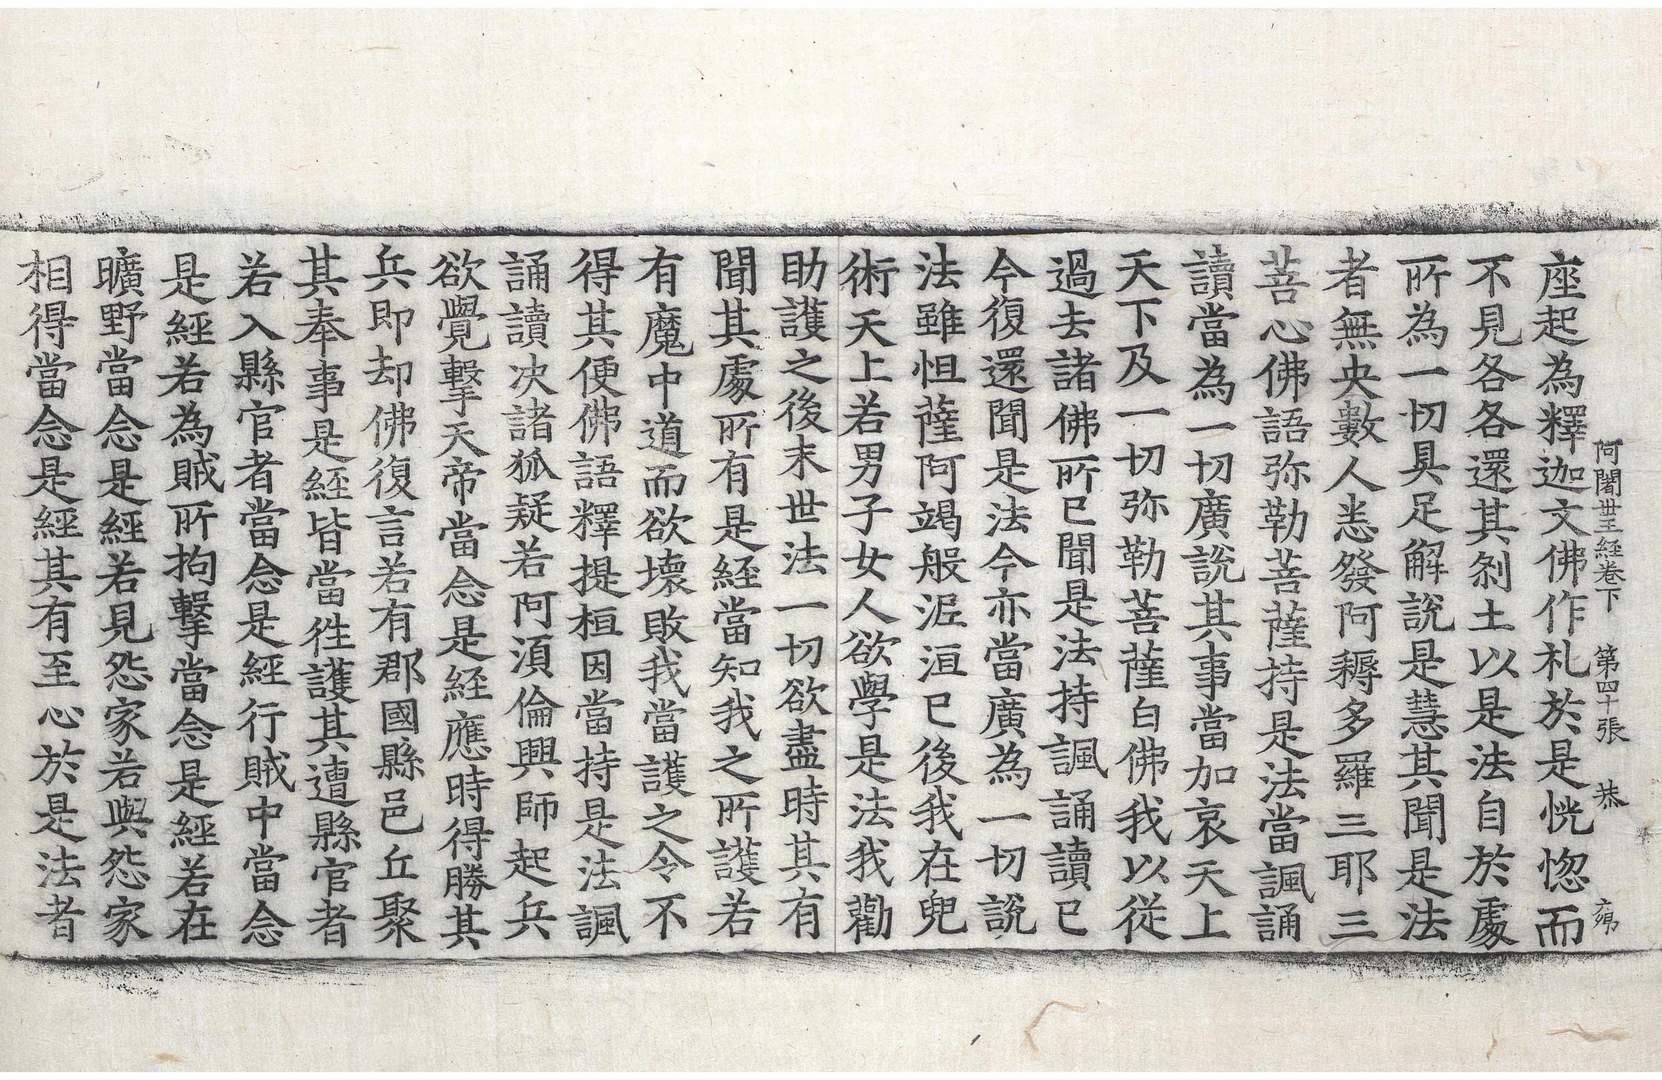 阿闍世王経卷下　第四十張　恭
座起為釋迦文佛作札於是恍惚而
不見各各還其剎土以是法自於處
所為一切具足解說是慧其聞是法
者無央數人悉發阿耨多羅三耶三
菩心佛語弥勒菩薩持是法當諷誦
讀當為一切廣說其事當加哀天上
天下及一切弥勒菩薩白佛我以從
過去諸佛所已聞是法持諷誦讀已
今復還聞是法今亦當廣為一切說
法雖怛薩阿竭般泥洹已後我在兜
術天上若男子女人欲學是法我勸
助護之後末世法一切欲盡時其有
聞其處所有是經當知我之所護若
有魔中道而欲壞敗我當護之令不
得其便佛語釋提桓因當持是法諷
誦讀决諸狐疑若阿湏倫興師起兵
欲覺擊天帝當念是経應時得勝其
兵即却佛復言若有郡國縣邑丘聚
其奉事是経皆當徃護其遭縣官者
若入縣官者當念是経行賊中當念
是經若為賊所拘擊當念是經若在
曠野當念是經若見怨家若與怨家
相得當念是經其有至心於是法者